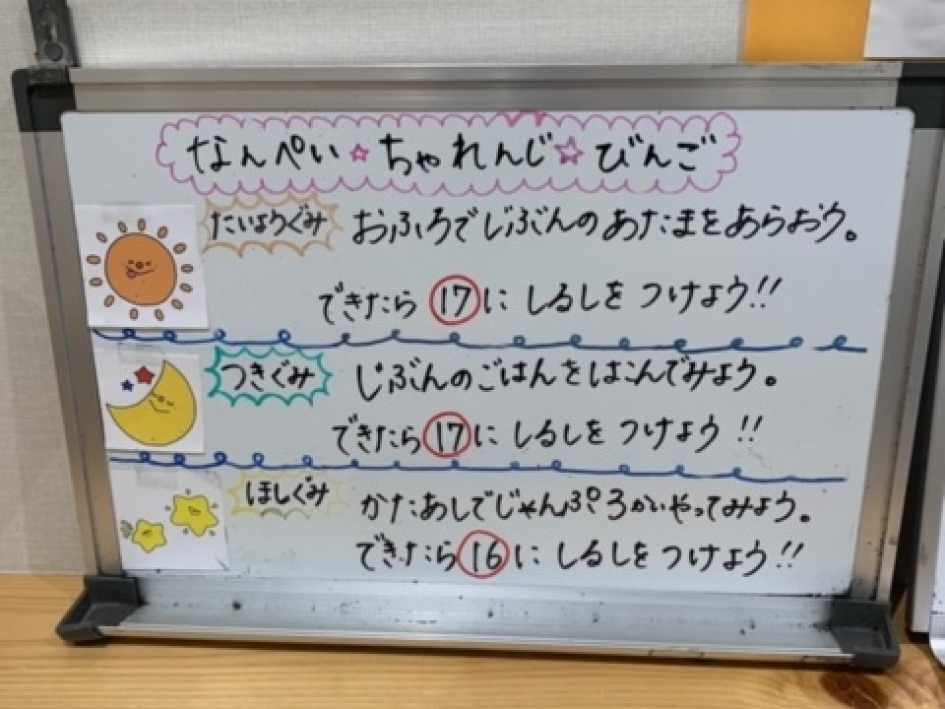 なんぺい☆ちゃれんじ☆びんご
たいようぐみ おふろでじぶんのあたまをあらおう。
できたら⑰にしるしをつけよう!!
つきぐみ じぶんのごはんをはこんでみよう。
できたら⑰にしるしをつけよう!!
ほしぐみ かたあしでじゃんぷ5かいやってみよう。
できたら⑯にしるしをつけよう!!